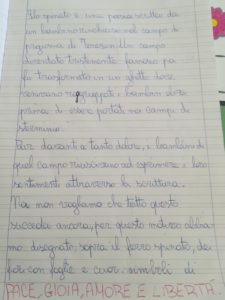 Filo spinato è una poesia scritta da
un bambino rinchiuso nel campo di
prigionia di Terezin. Un campo
diventato tristemente famoso
fu trasformato in un ghetto dove
venivano raggruppati i bambini ebrei
prima di essere portati nei campi di
sterminio.
Pur davanti a tanto dolore, i bambini di
quel campo riuscivano ad esprimere i loro
sentimenti attraverso la scrittura.
Noi non vogliamo che tutto questo
succeda ancora, per questo motivo abbia-
mo disegnato, sopra il ferro spinato, dei
fiori con foglie e cuori, simboli di
PACE, GIOIA, AMORE E LIBERTÀ.